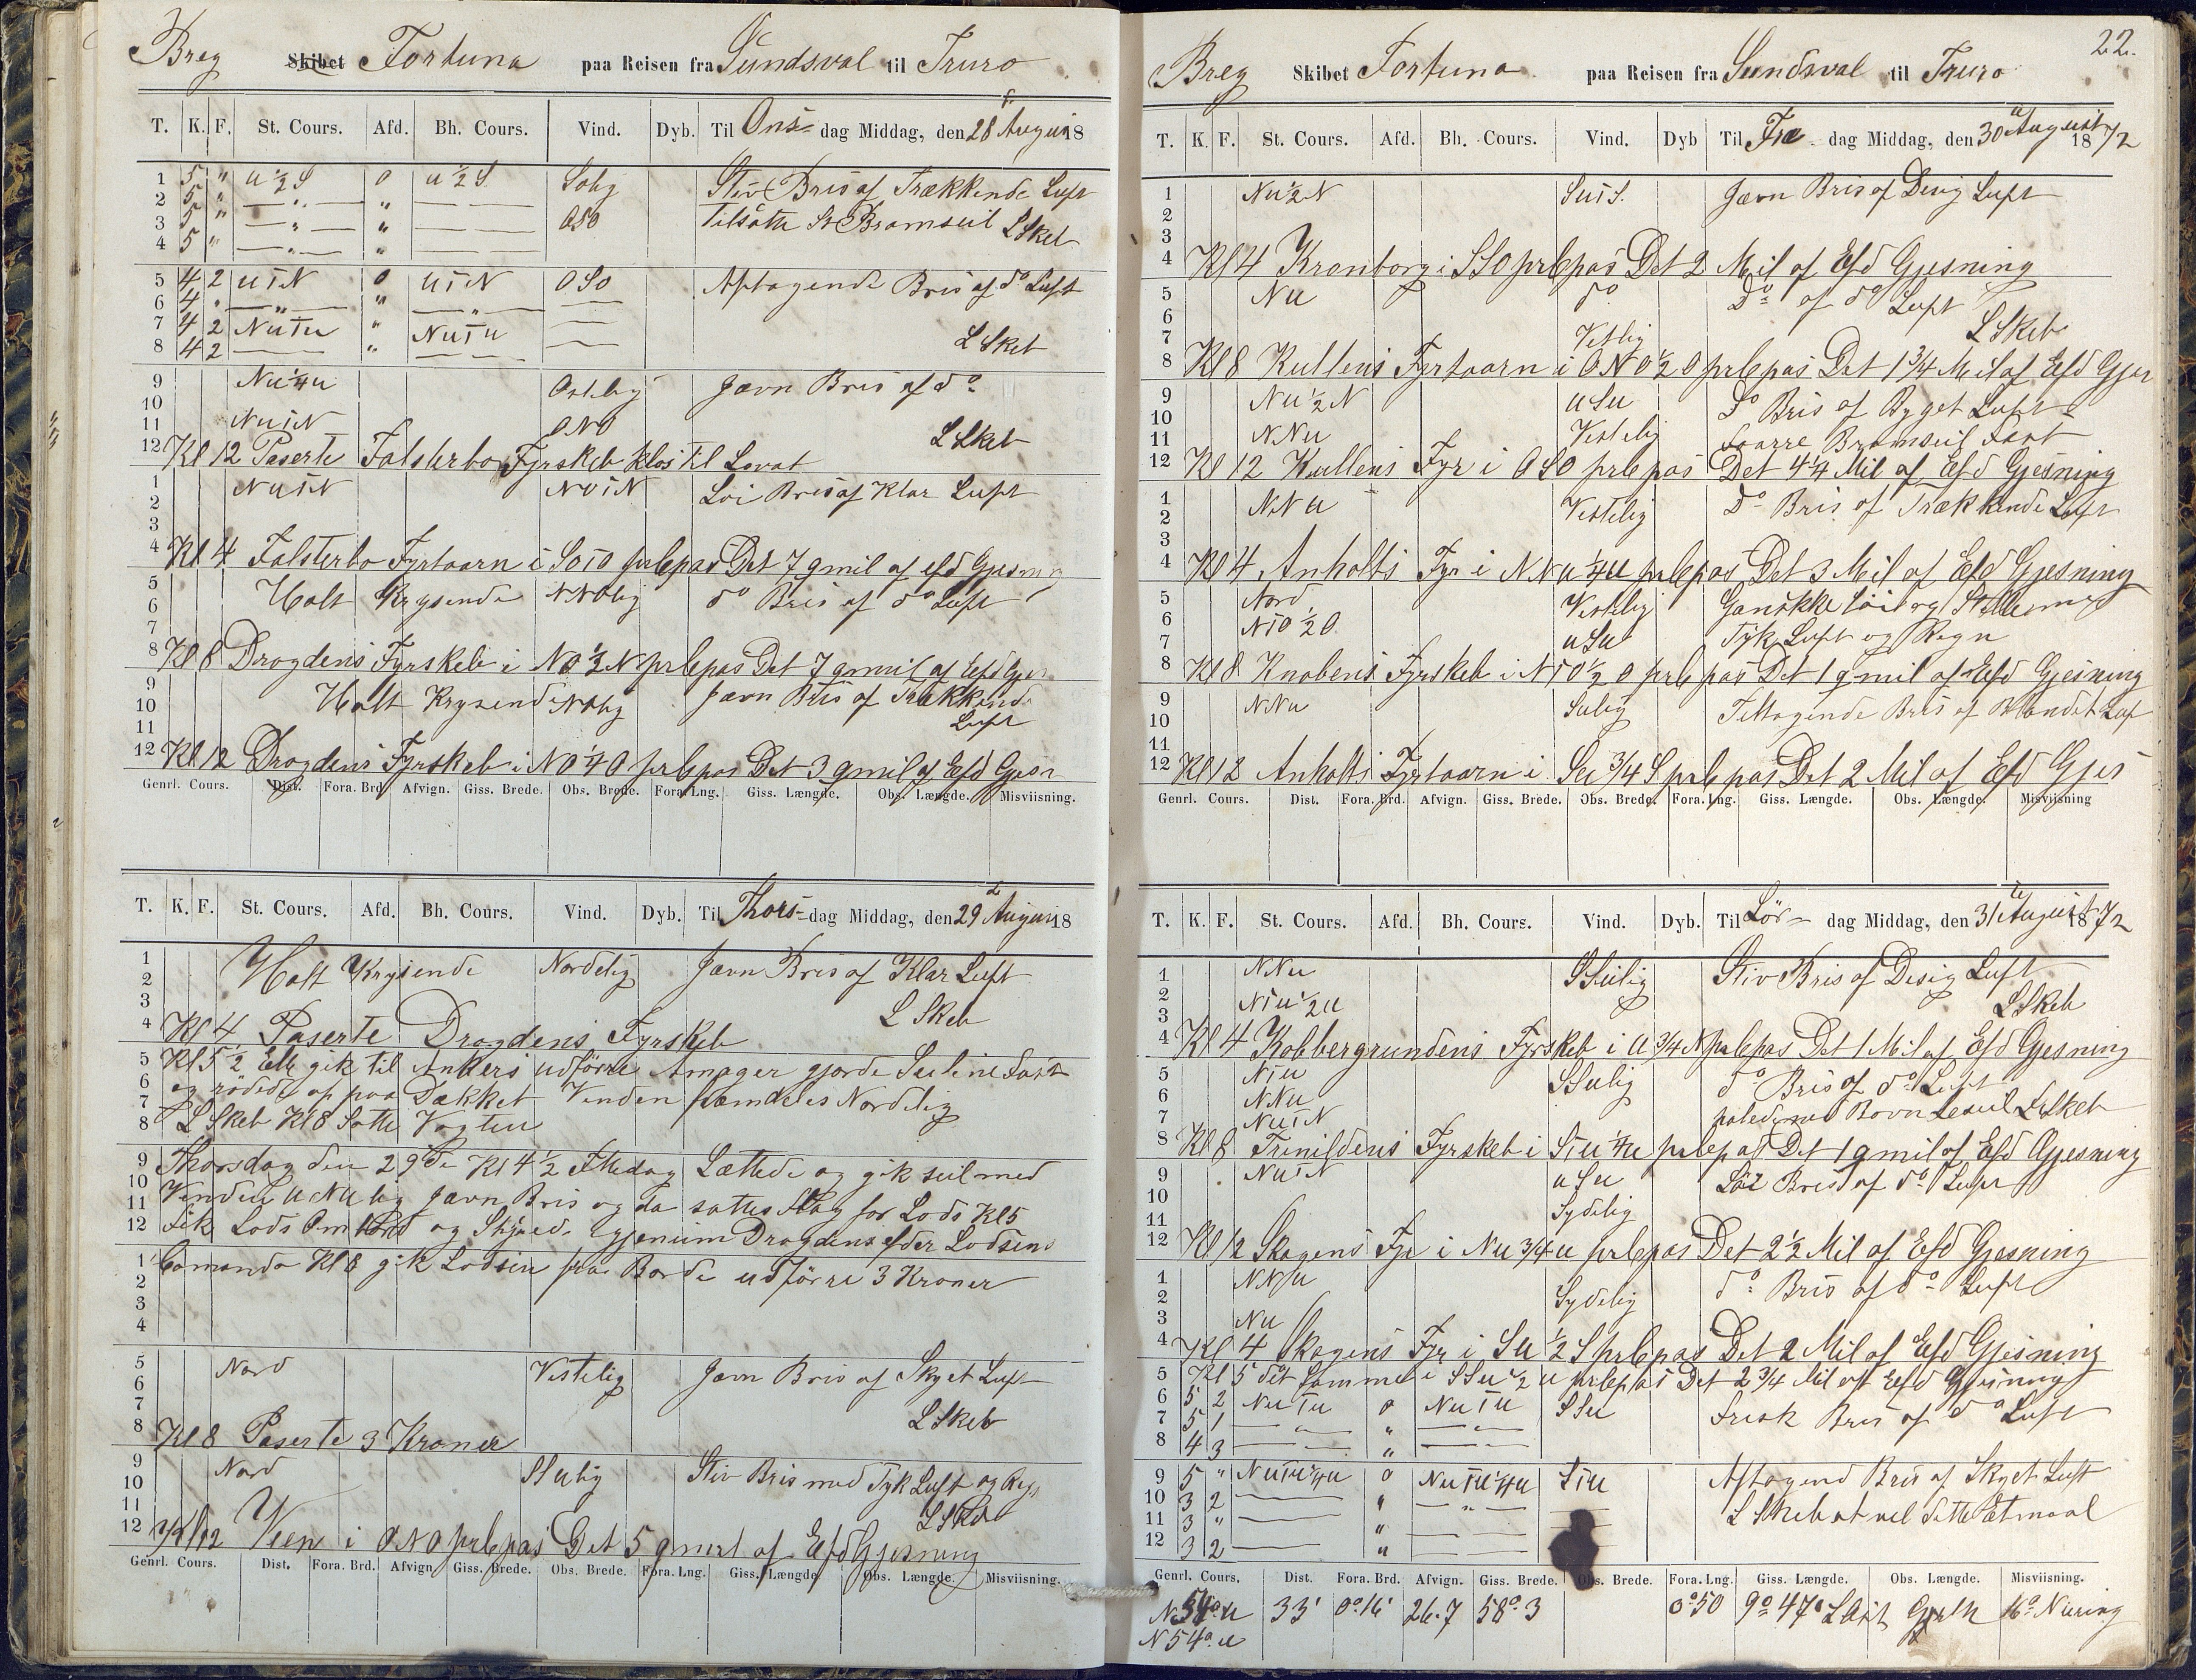 Breg Skibet Fortuna paa Reisen fra Sundsval til Truro
T. K. F. St. Cours. Afd. Bh. Cours. Vind. Dyb. Til Ons= dag Middag, den 28 August 18
1 5 " u ½ S 0 u ½ S. Solig Stiv Bris af Trækkende Luft
2 5 " — " — " — —
3 5 " — " — " — — OSO Tilsatte St Bramseil L Skeb
4 5 " — " — " — —
5 4 2 u T N 0 u T N OSO Aftagende Bris af do Luft
6 4 " — " — " — " — —
7 4 2 Nu T u " Nu T u —
8 4 2 — " — — — L Skeb
9 Nu ¼ u Ostlig Jævn Bris af do
10
11 Nu T N ONO L Skeb
12 Kl 12 Paserte Falsterbo Fyrskeb klos til Lovat
1 Nu T N NOTN Löi Bris af Klar Luft
2
3
4 Kl 4 Falsterbo Fyrtaarn i SOTO prlepas Det 7 qmil af efd Gjesning
5 Holt Krysende NNOlig do Bris af do Luft
6
7
8 Kl 8 Drogdens Fyrskeb i NO ½ N prlepas Det 7 qmil af Efd Gjes
9 Holt Krysende NOlig Jævn Bris af Trækkende
10 Luft
11
12 Kl 12 Drogdens Fyrskeb i NO ¼ O prlepas Det 3 qmil af Efd Gjesn
Genrl. Cours. Dist. Fora. Brd. Afvign. Giss. Brede. Obs. Brede. Fora. Lng. Giss. Længde. Obs. Længde. Misviisning.
T. K. F. St. Cours. Afd. Bh. Cours. Vind. Dyb. Til Thors= dag Middag, den 29 August 18
1 Holt Krysende Nordelig Jævn Bris af Klar Luft
2
3 L Skeb
4 Kl 4 Paserte Drogdens Fyrskeb
5 Kl 5 ½ Efte gik til Ankers udförre Amager gjorde Seilene Fast
6 og rödede op paa Dækket Vinden fremdeles Nordelig
7
8 L Skeb Kl 8 Satte Vagten
9 Thorsdag den 29de Kl 4 ½ Ettedag Lættede og gik seil med
10 Vinden uNulig Jævn Bris og da sattes Flag for Lods Kl 5
11
12 Fik Lods Ombord og Skjued. igjenium Drogdens efder Lodsens
1 Comando Kl 8 gik Lodsen fra Borde udförre 3 Kroner
2
3
4
5 Nord Vestelig Jævn Bris af Skyet Luft
6
7 L Skeb
8 Kl 8 Paserte 3 Kroner
9 Nord SSulig Stiv Bris med Tyk Luft og Regn
10
11 L Skeb
12 Kl 12 Veen i ONO prlepas Det 5 qmil af Efd Gjesning
Genrl. Cours. Dist. Fora. Brd. Afvign. Giss. Brede. Obs. Brede. Fora. Lng. Giss. Længde. Obs. Længde. Misviisning.
22.
Breg Skibet Fortuna paa Reisen fra Sundsval til Truro
T. K. F. St. Cours. Afd. Bh. Cours. Vind. Dyb Til Fre- dag Middag, den 30 te August 1872
1 Nu ½ N SuTS. Jævn Bris af Desig Luft
2
3
4 Kl 4 Kronborg i SSO prlepas Det 2 Mil af Efd Gjesning
5 Nu do Do af do Luft
6
7 Vestlig L Skeb
8 Kl 8 Kullens Fyrtaarn i ONO ½ O prlepas Det 1 ¾ Mil af Efd Gjes
9 Nu ½ N uSu Do Bris af Byget Luft
10
11 NNu Vestelig Foarre Bramseil Fast
12 Kl 12 Kullens Fyr i OSO prlepas Det 4 ¼ Mil af Efd Gjesning
1 NNu Vestelig Do Bris af Trækkende Luft
2
3
4 Kl 4 Anholts Fyr i NNu ¼ u prlepas Det 3 Mil af Efd Gjesning
5 Nord Vestelig Ganskke Löit og Stille
6 NTO ½ O
7 uSu Tyk Luft og Regn
8 Kl 8 Knobens Fyrskeb i NTO ½ O prlepas Det 1 qmil af Efd Gjesning
9 NNu Sulig Teltagende Bris af Blandet Luf
10
11
12 Kl 12 Anholts Fyrtaarn i Su ¾ S prlepas Det 2 Mil af Efd Gjes
Genrl. Cours. Dist. Fora. Brd. Afvign. Giss. Brede. Obs. Brede. Fora. Lng. Giss. Længde. Obs. Længde. Misviisning
T. K. F. St. Cours. Afd. Bh. Cours. Vind. Dyb. Til Lör- dag Middag, den 31 te August 1872
1 NNu SSulig Stiv Bris af Desig Luft
2 NTu ½ u
3 L Skeb
4 Kl 4 Kobbergrundens Fyrskeb i u ¾ N prlepas Det 1 Mil af Efd Gjesning
5 NTu SSulig do Bris af do Luft
6 NNu
7 NuTN Bovn Leseil L Skeb
8 Kl 8 Trinildens Fyrskeb i STu ¼ u prlepas Det 1 qmil af Efd Gjesning
9 NuTN uSu Löi Bris af do Luft
10
11 Sydelig
12 Kl 12 Skagens Fyr i Nu ¾ u prlepas Det 2 ½ Mil af Efd Gjesning
1 NNu do Bris af do Luft
2 Sydelig
3 Nu
4 Kl 4 Skagens Fyr i Su ½ S prlepas Det 2 Mil af Efd Gjesning
5 Kl 5 det Samme i SSu ½ u prlepas Det 2 ¾ Mil af Efd Gjesning
6 5 2 NuTu 0 NuTu SSu Frisk Bris af do Luft
7 5 1 — " — " — " —
8 4 3 — " — " — " —
9 5 " NuTu ¼ u 0 NuTu ¼ u STu Aftagend Bris af Skyet Luft
10 3 2 — " — " — L Skeb at vel dette Etmaal
11 3 " — " — —
12 3 2 — " — —
Genrl. Cours. Dist. Fora. Brd. Afvign. Giss. Brede. Obs. Brede. Fora. Lng. Giss. Længde. Obs. Længde. Misviisning.
N 54° u 33' 0° 16' 26.7 58° 3 0° 50 9° 47' 16°
N 54° u